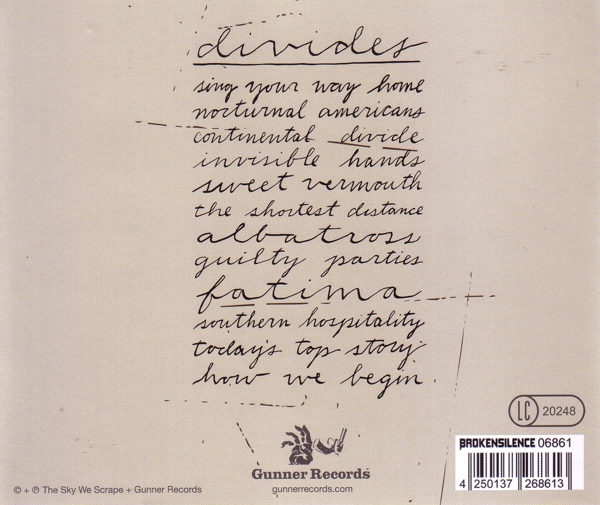 divides
sing your way home
nocturnal americans
continental divide
invisible hands
sweet vermouth
the shortest distance
albatross
guilty parties
fatima
southern hospitality
today's top story
how we begin.
LC 20248
BROKENSILENCE 06861
4 250137 268613
Gunner Records
gunnerrecords.com
© + ℗ The Sky We Scrape + Gunner Records